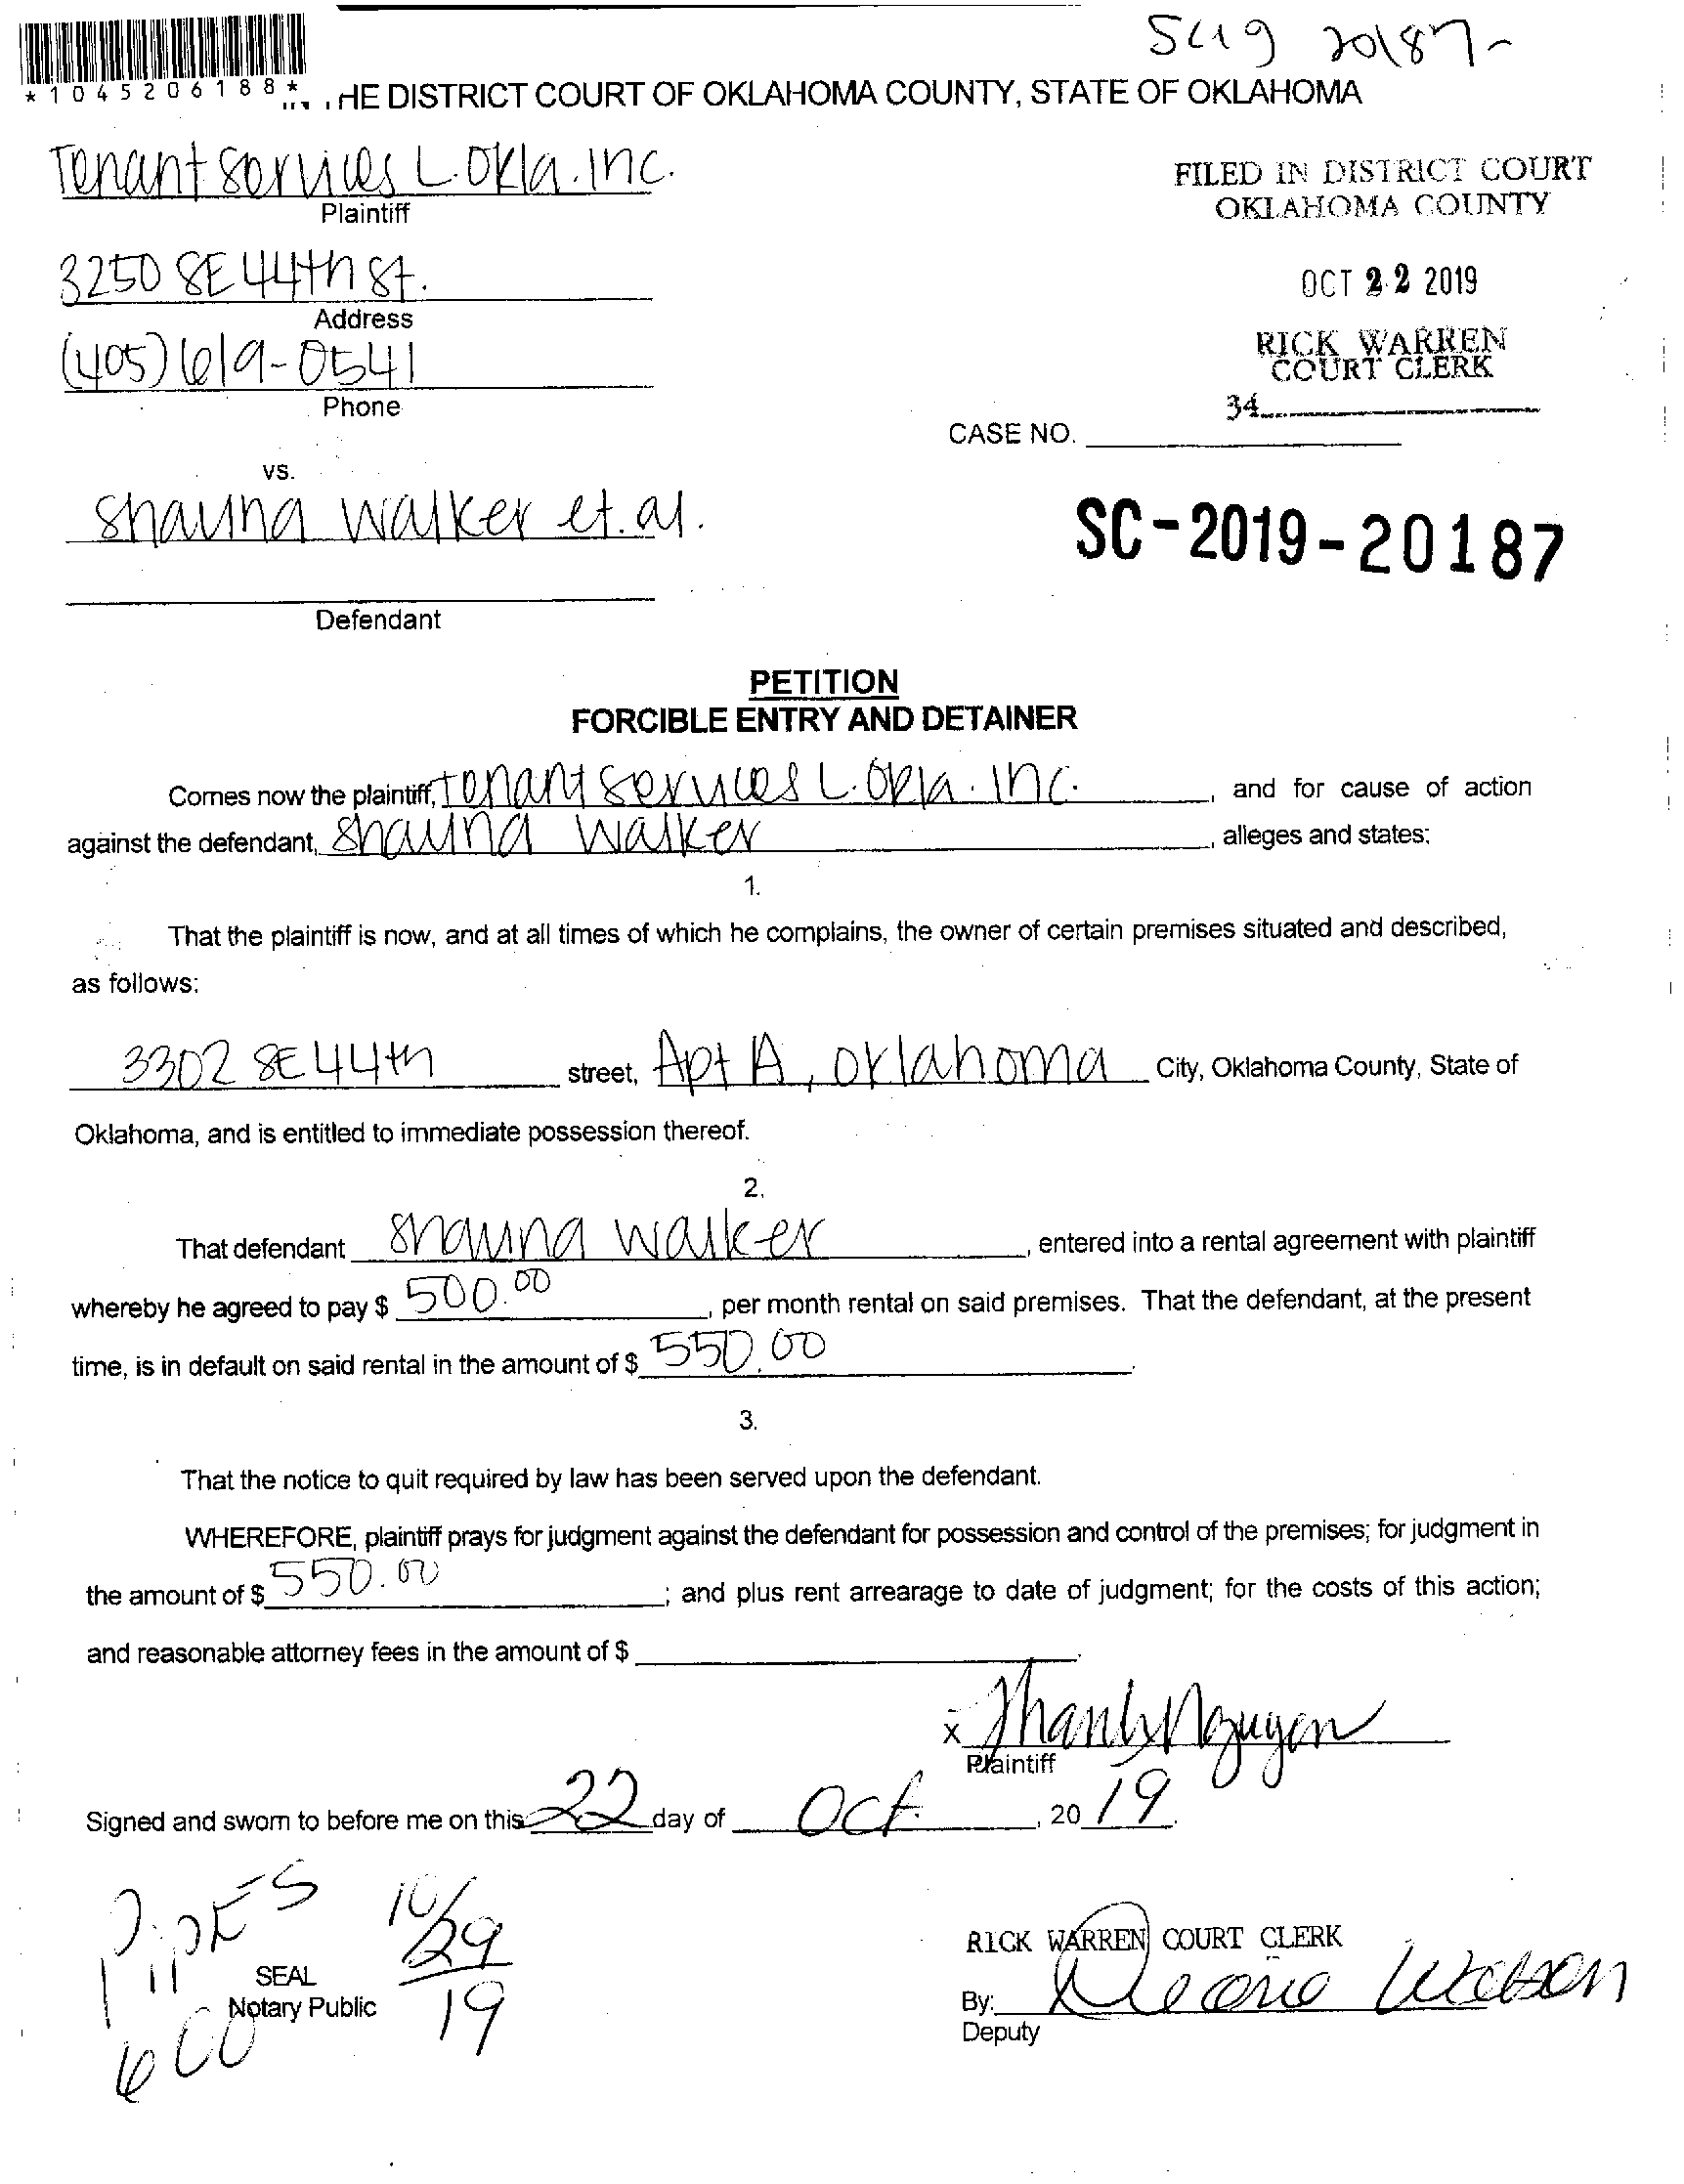 SC19 20187-
*1045206188*
HE DISTRICT COURT OF OKLAHOMA COUNTY, STATE OF OKLAHOMA
Tenant Services L. Okla. Inc.
Plaintiff
FILED IN DISTRICT COURT
OKLAHOMA COUNTY
3250 SE 44th St.
Address
OCT 22 2019
(405) 619-0541
Phone
RICK WARREN
COURT CLERK
34
CASE NO.
vs.
Shauna Walker et. al.
SC-2019-20187
Defendant
PETITION
FORCIBLE ENTRY AND DETAINER
Comes now the plaintiff, Tenant Services L. Okla. Inc. , and for cause of action
against the defendant, Shauna Walker , alleges and states:
1.
That the plaintiff is now, and at all times of which he complains, the owner of certain premises situated and described,
as follows:
3302 SE 44th street, Apt A, Oklahoma City, Oklahoma County, State of
Oklahoma, and is entitled to immediate possession thereof.
2.
That defendant Shauna Walker , entered into a rental agreement with plaintiff
whereby he agreed to pay $ 500.00 , per month rental on said premises. That the defendant, at the present
time, is in default on said rental in the amount of $ 550.00 .
3.
That the notice to quit required by law has been served upon the defendant.
WHEREFORE, plaintiff prays for judgment against the defendant for possession and control of the premises; for judgment in
the amount of $ 550.00 ; and plus rent arrearage to date of judgment; for the costs of this action;
and reasonable attorney fees in the amount of $ .
x Thanh Nguyen
Plaintiff
Signed and sworn to before me on this 22 day of Oct. , 20 19.
10/29
19
SEAL
Notary Public
RICK WARREN COURT CLERK
By:
Watson
Deputy